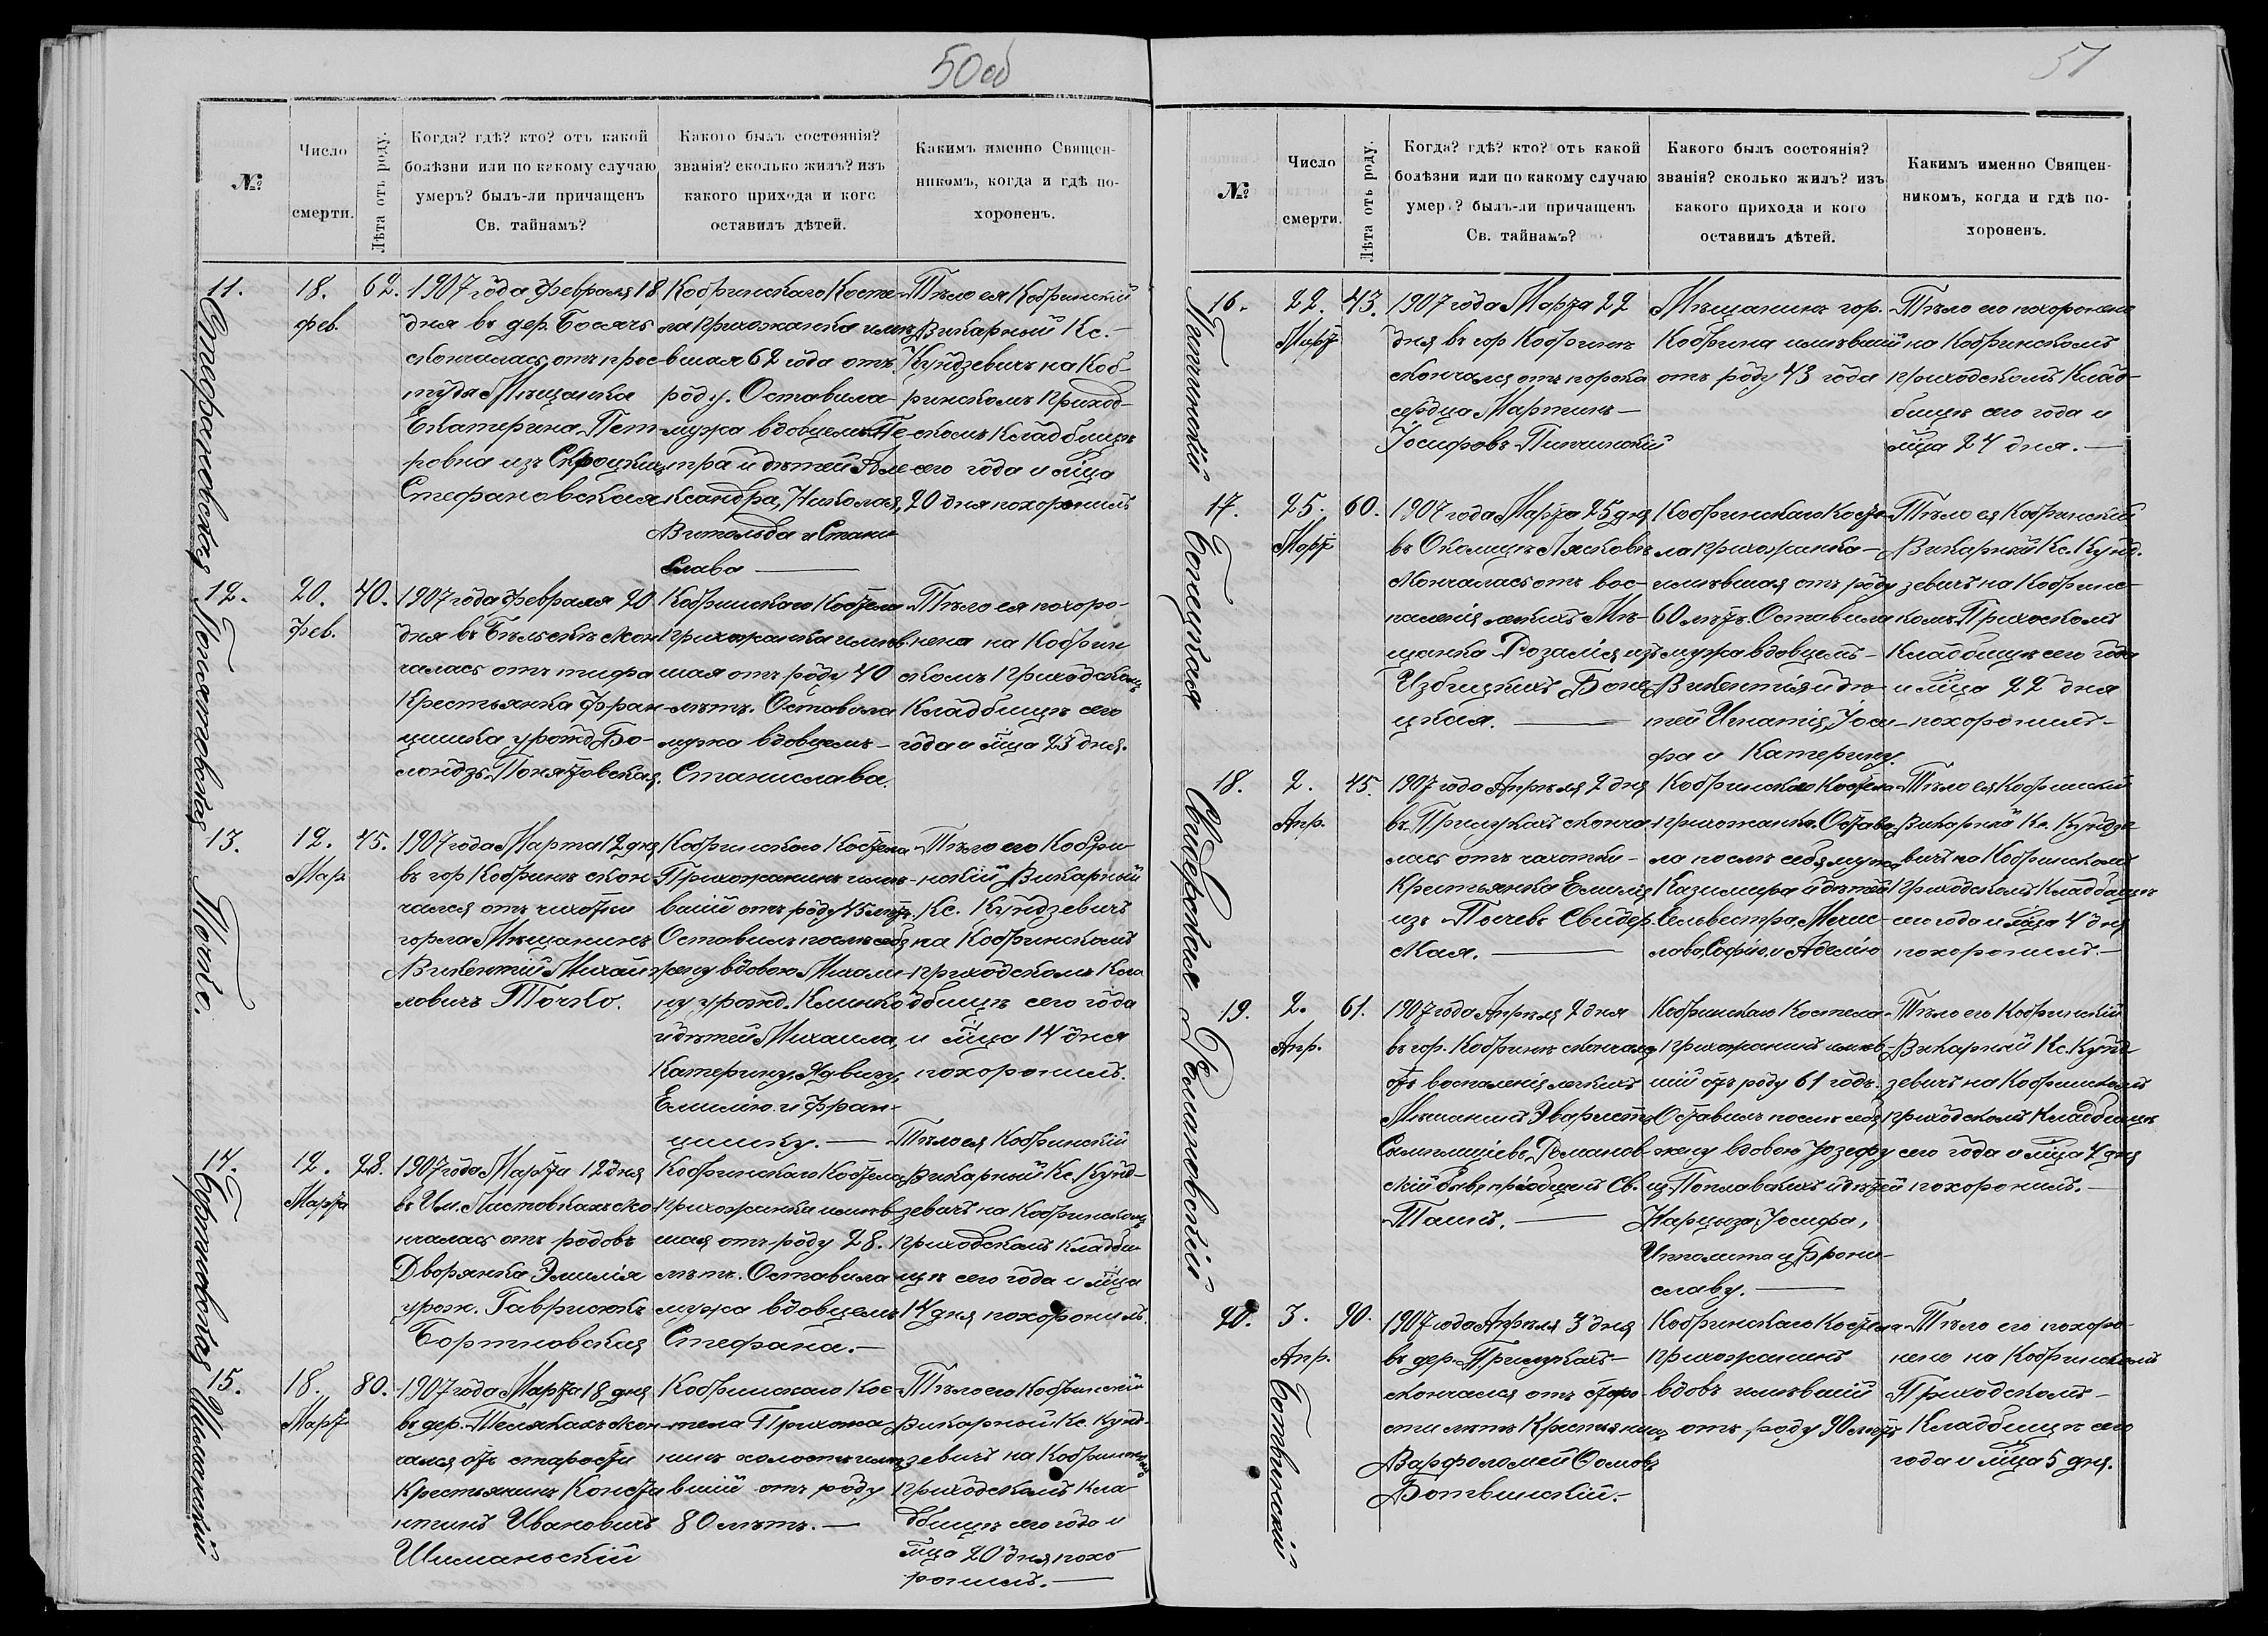 50об
№
Число
смерти.
Лѣта отъ роду.
Когда? гдѣ? кто? отъ какой
болѣзни или по какому случаю
умеръ? былъ-ли причащенъ
Св. тайнамъ?
Какого былъ состоянія?
званія? сколько жилъ? изъ
какого прихода и кого
оставилъ дѣтей.
Какимъ именно Священ-
никомъ, когда и гдѣ по-
хороненъ.
11.
Стефановская
18.
Фев.
62.
1907 года Февраля 18
дня въ дер.
скончалась отъ прос
туды Мѣщанка
Екатерина Пет-
ровна изъ
Стефановская
Кобринскаго Косте-
ла Прихожанка имѣ
вшая 62 года отъ
роду. Оставила
мужа вдовцемъ Пе-
тра и дѣтей Але
ксандра, Николая,
Витольда и Стани
слава
Тѣло ея Кобринскій
Викарный Кс.
Кундзевичъ на Коб-
ринскомъ Приход-
скомъ Кладбищѣ
сего года и мѣца
20 дня похоронилъ
12.
Понятовская
20.
Фев.
40.
1907 года Февраля 20
дня въ Бѣльскѣ скон
чалась отъ тифа
Крестьянка Фран-
цишка урожд. Бо-
Понятовская.
Кобринскаго Костела
Прихожанка имѣв-
шая отъ роду 40
лѣтъ. Оставила
мужа вдовцемъ
Станислава.
Тѣло ея похоро-
нена на Кобрин
скомъ Приходскомъ
Кладбищѣ сего
года и мѣца 23 дня.
13.
Точко.
12.
Мар
45.
1907 года Марта 12 дня
въ гор Кобринѣ скон
чался отъ чахотки
горла Мѣщанинъ
Викентій Михай
ловичъ Точко.
Кобринскаго Костела
Прихожанинъ имѣ-
вшій отъ роду 45 лѣтъ.
Оставилъ послѣ себя
жену вдовою Михали-
ну урожд. Клинко
и дѣтей Михаила,
Катерину, Ядвигу,
Емилію и Фран-
цишку.
Тѣло его Кобри-
нскій Викарный
Кс. Кундзевичъ
на Кобринскомъ
приходскомъ Кла
дбищѣ сего года
и мѣца 14 дня
похоронилъ.
14.
Бортновская
12.
Марта
28.
1907 года Марта 12 дня
въ Им. Листовкахъ ско
нчалась отъ родовъ
Дворянка Эмилія
урож. Гаврилюкъ
Бортновская
Кобринскаго Костела
прихожанка имѣв-
шая отъ роду 28.
лѣтъ. Оставила
мужа вдовцемъ
Стефана.
Тѣло ея Кобринскій
Викарный Кс. Кунд-
зевичъ на Кобринскомъ
Приходскомъ Кладби-
щѣ сего года и мѣца
14 дня похоронилъ.
15.
Шиманскій
18.
Март
80.
1907 года Марта 18 дня
въ дер. Шеляхахъ скон
чался отъ старости
Крестьянинъ Конста
нтинъ Ивановичъ
Шиманьскій
Кобринскаго Кос-
тела Прихожа-
нинъ холостъ имѣ
вшій отъ роду
80 лѣтъ.
Тѣло его Кобринскій
Викарный Кс. Кунд-
зевичъ на Кобринскомъ
приходскомъ Кла-
дбищѣ сего года и
мѣца 20 дня похо-
ронилъ.
51
№
Число
смерти.
Лѣта отъ роду.
Когда? гдѣ? кто? отъ какой
болѣзни или по какому случаю
умер.? былъ-ли причащенъ
Св. тайнамъ?
Какого былъ состоянія?
званія? сколько жилъ? изъ
какого прихода и кого
оставилъ дѣтей.
Какимъ именно Священ-
никомъ, когда и гдѣ по-
хороненъ.
16.
Пипинскій
22.
Март
43.
1907 года Марта 22
дня въ гор Кобринѣ
скончался отъ порока
сердца Мартинъ
Іосифовъ
Мѣщанинъ гор.
Кобрина имѣвшій
отъ роду 43 года
Тѣло его похоронено
на Кобринскомъ
приходскомъ Клад-
бищѣ сего года и
мѣца 24 дня.
17.
Бонецкая
25.
Март
60.
1907 года Марта 25 дня
въ Околицѣ Лясковѣ
скончалась отъ вос-
паленія легкихъ Мѣ-
щанка Розалія изъ
Избицкихъ Боне-
цкая.
Кобринскаго Косте-
ла прихожанка
имѣвшая отъ роду
60 лѣтъ. Оставила
мужа вдовцемъ
Викентія и дѣ-
тей Игнатія, Іоси-
фа и Катерину.
Тѣло ея Кобринскій
Викарный Кс. Кунд-
зевичъ на Кобринс-
комъ Прихоскомъ
Кладбищѣ сего года
и мѣца 22 дня
похоронилъ
18.
Свидерская
2.
Апр.
45.
1907 года Апрѣля 2 дня
въ Прилукахъ сконча
лась отъ чахотки
Крестьянка Емилія
изъ Свидер-
ская.
Кобринскаго Костела
прихожанка. Остави-
ла послѣ себя мужа
Казимира и дѣтей
Сельвестра, Мечис-
лава, Софію и Аделію
Тѣло ея Кобринскій
Викарный Кс. Кундзе-
вичъ на Кобринскомъ
Приходскомъ Кладбищѣ
сего года и мѣца 4 дня
похоронилъ.
19.
Романовскій
2.
Апр.
61.
1907 года Апрѣля 2 дня
въ гор. Кобринѣ скончался
отъ воспаленія легкихъ
Мѣщанинъ Эваристъ
Романов-
скій бывъ пріобщенъ Св.
Таинъ.
Кобринскаго Костела
прихожанинъ имѣв-
шій отъ роду 61 годъ.
Оставилъ послѣ себя
жену вдовою Юзефу
из Поплавскихъ и дѣтей
Нарцыза, Іосифа,
Ипполита и Брони-
славу.
Тѣло его Кобринскій
Викарный Кс. Кунд
зевичъ на Кобринскомъ
приходскомъ Кладбищѣ
сего года и мѣца 4 дня
похоронилъ.
20.
Ботвинскій
3.
Апр.
90.
1907 года Апрѣля 3 дня
въ дер. Прилукахъ
скончался отъ старо-
сти лѣтъ Крестьянинъ
Варфоломей Ѳомовъ
Ботвинскій.
Кобринскаго Костела
прихожанинъ
вдовъ имѣвшій
отъ роду 90 лѣтъ
Тѣло его похоро-
нено на Кобринскомъ
Приходскомъ
Кладбищѣ сего
года и мѣца 5 дня.